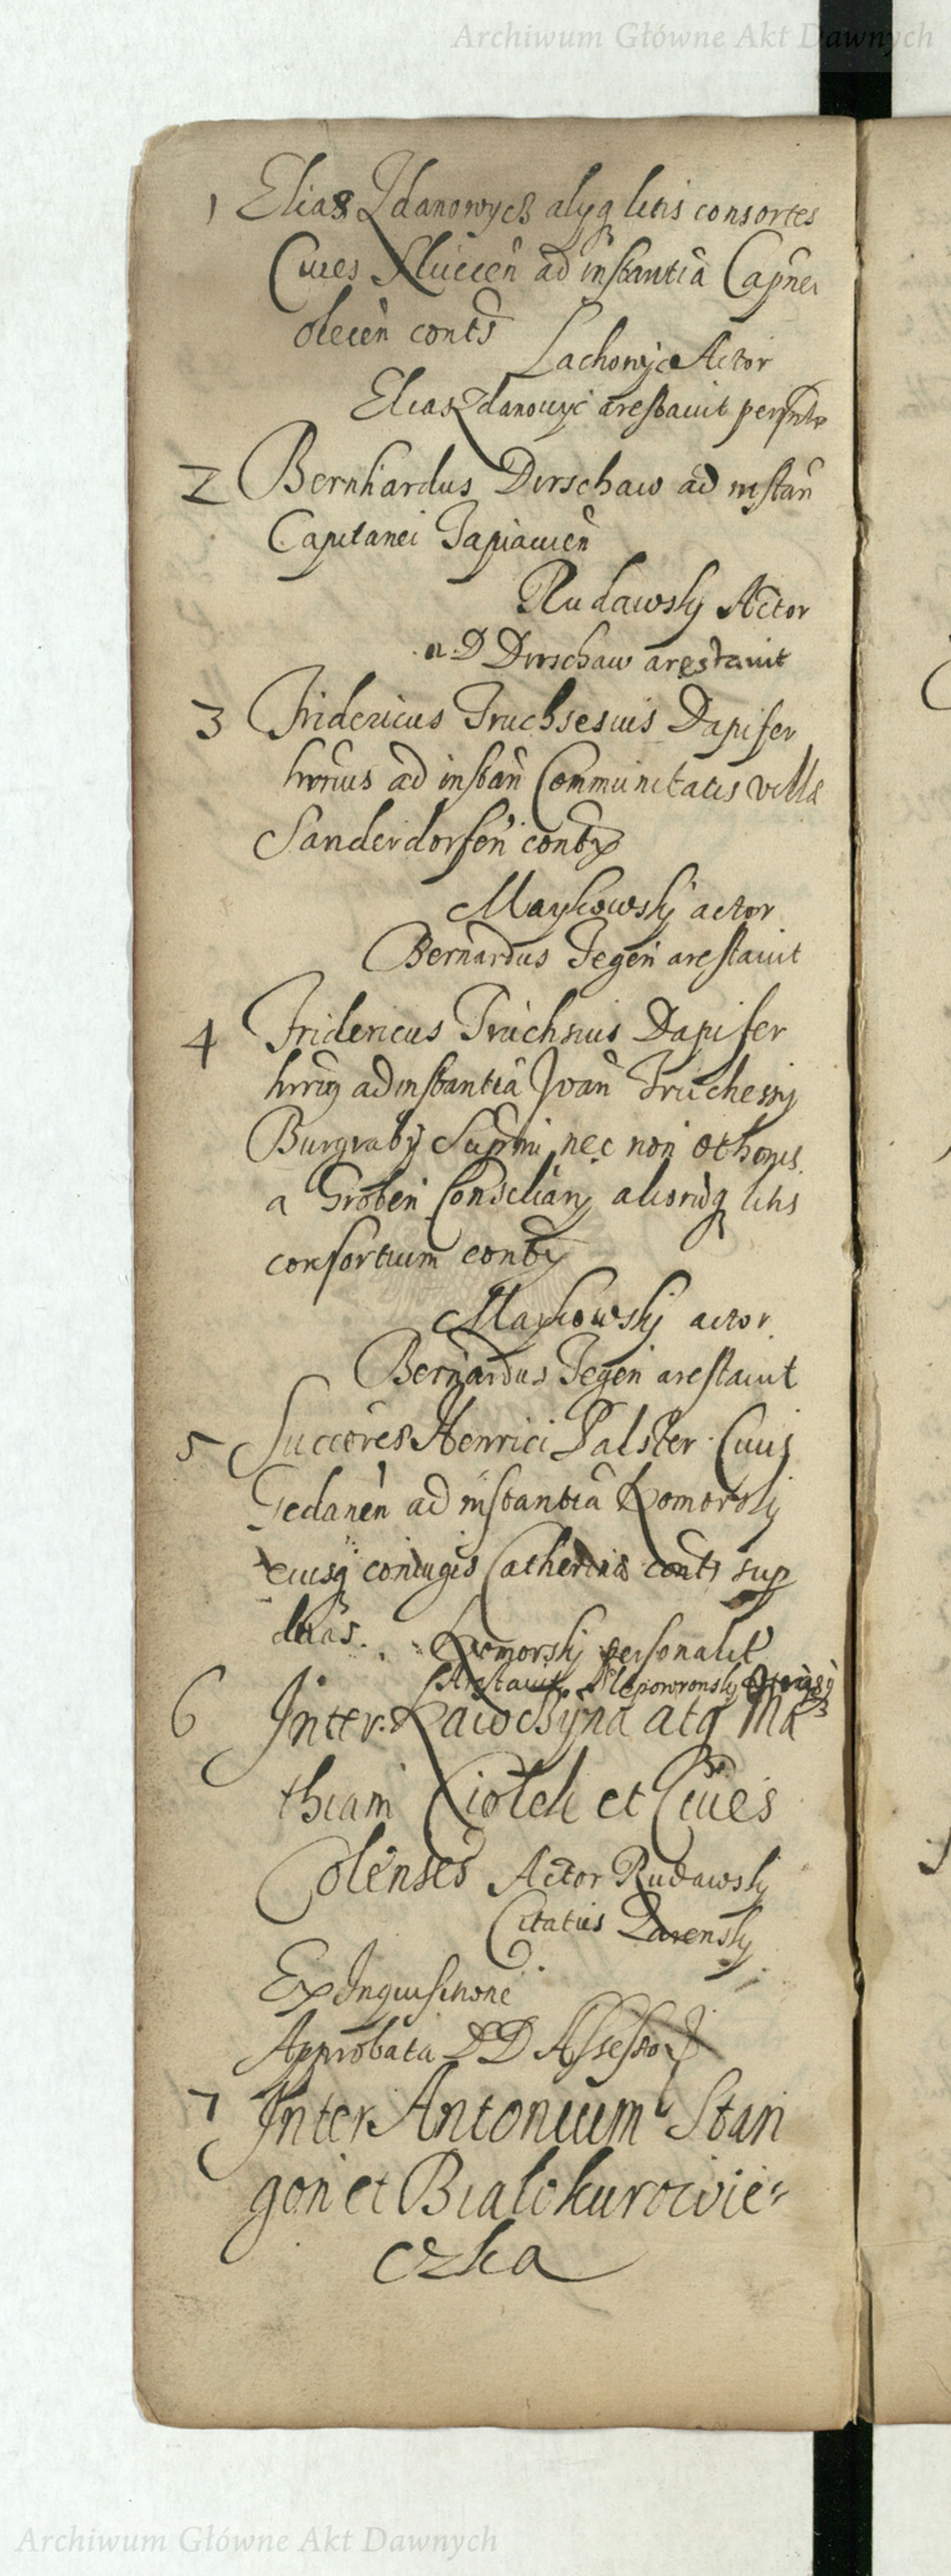 Archiwum Główne Akt Dawnych
1 Elias Zdanowycz alyq litis consortes
Cives Slucen ad instantia Capnei
olecen conts
Lachowic Actor
Elias Zdanowyc arestavit
2 Bernhardus Dirschaw ad instan
Capitanei Tapiavien
Rudawsky Actor
D Dirschaw arestavit
3 Fridericus Truchsesius Dapifer
hrnius ad instan Communitatis villa
Sanderdorfen contx
Maykowskij actor
Bernardus Tegen arestavit
4 Fridericus Truchsius Dapifer
ad instantia Joan Truchessy
Burgrabij Supmi nec non Othonis
a Groben Consiliarij aliorumq litis
consortium contx
Maykowskij actor
Bernardus Tegen arestavit
5 Succores Henrici Palster Civis
Gedanen ad instantia Komorskij
eiusq coniugis Catherina conts sup
duas. Komorskij personalit
Arestavit Slepowronsky
6 Inter Kawczyna atq Ma
thiam Ciolek et Cives
Colenses Actor Rudawsky
Citatus Zarensky
Ex Inquisitione
Approbata DD Assessor
7 Inter Antonium Stan
gon et Bialokurowie-
czka
Archiwum Główne Akt Dawnych